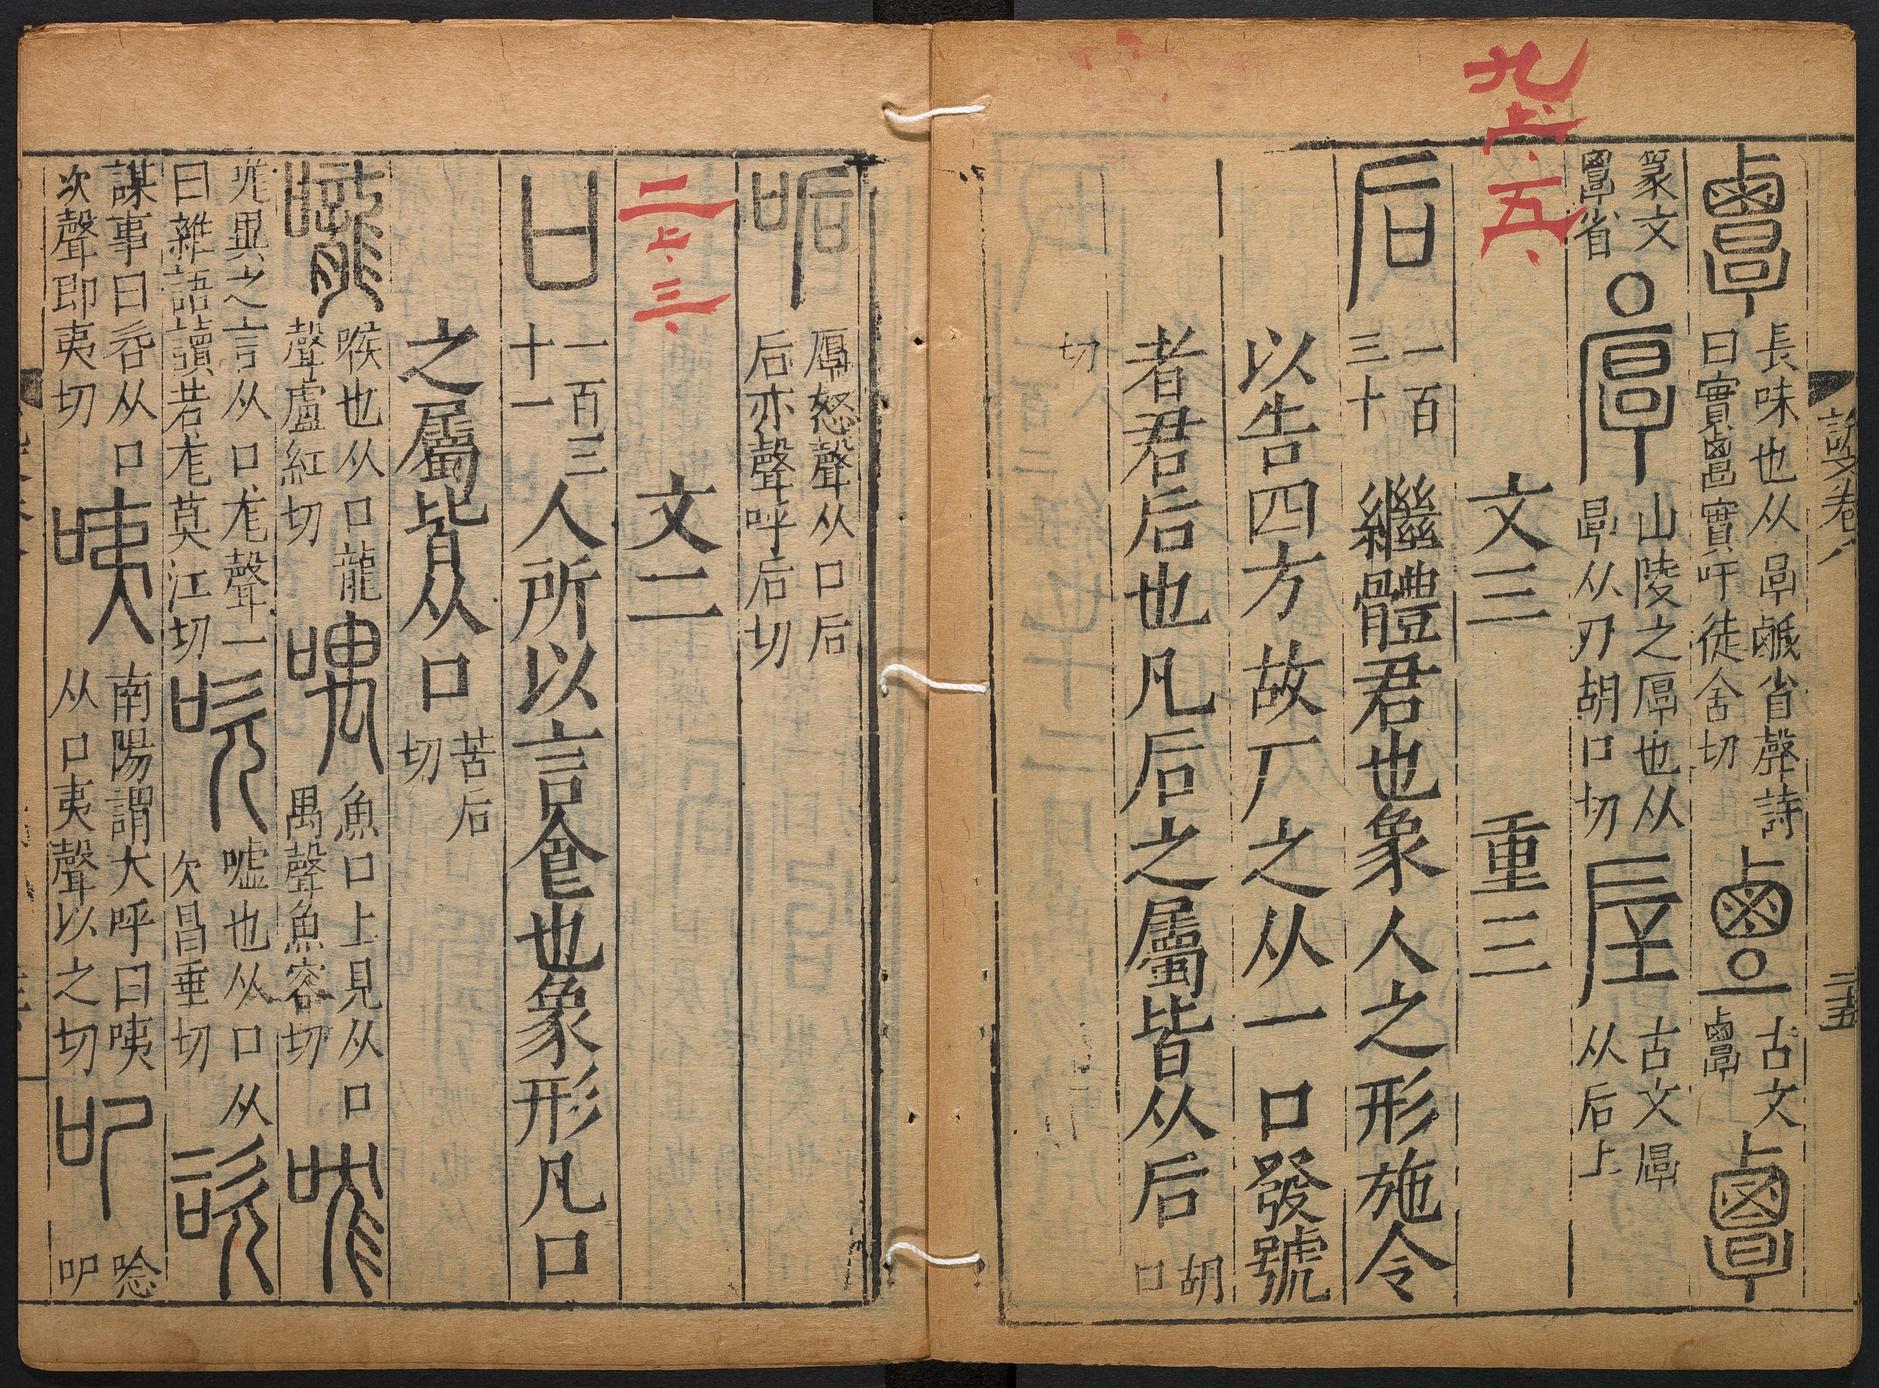 長味也从㫗鹹省聲詩
曰實覃實吁徒含切
古文
覃
篆文
覃省
山陵之厚也从
㫗从厂胡口切
古文厚
从后土
文三 重三
后 一百三十 繼體君也象人之形施令
以告四方故厂之从一口發號
者君后也凡后之屬皆从后 胡口
切
說文卷八
二十五
九上五
㖃 厚怒聲从口后
后亦聲呼后切
文二
二上三
口 一百三十一 人所以言食也象形凡口
之屬皆从口 苦后切
嚨 喉也从口龍
聲盧紅切
喁 魚口上見从口
禺聲魚容切
哤 哤異之言从口尨聲一
曰雜語讀若尨莫江切
吹 嘘也从口从
欠昌垂切
咨 謀事曰咨从口
次聲即夷切
咦 南陽謂大呼曰咦
从口夷聲以之切
吚 唸
吚